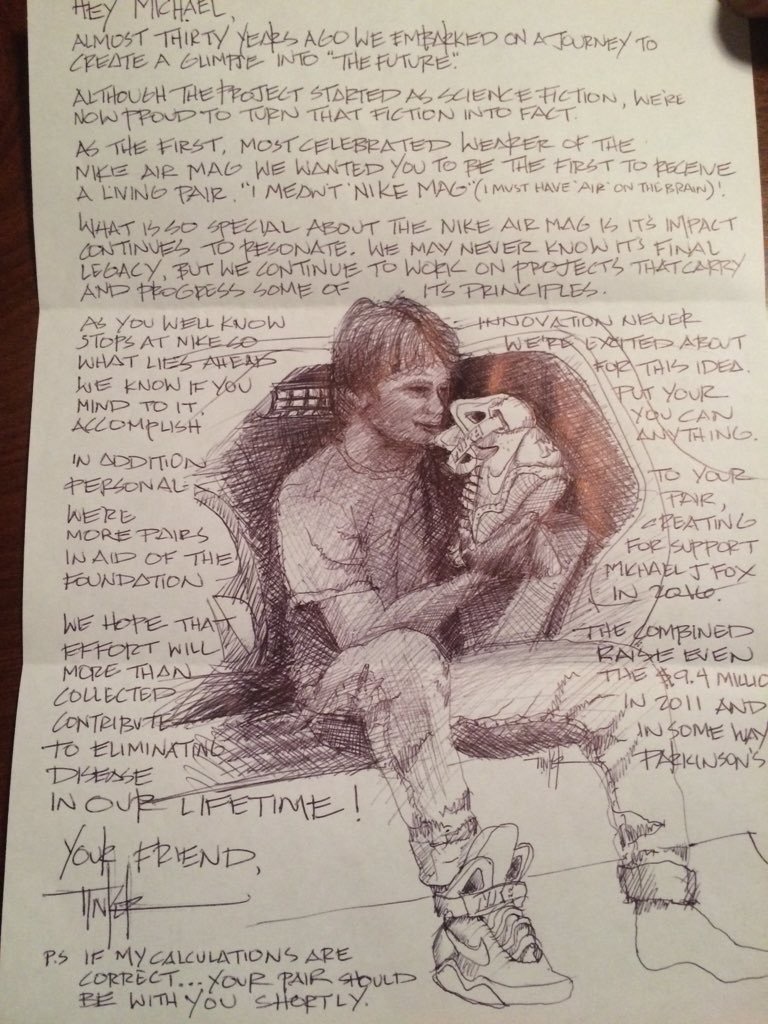 HEY MICHAEL,
ALMOST THIRTY YEARS AGO WE EMBARKED ON A JOURNEY TO
CREATE A GLIMPSE INTO "THE FUTURE."
ALTHOUGH THE PROJECT STARTED AS SCIENCE FICTION, WE'RE
NOW PROUD TO TURN THAT FICTION INTO FACT.
AS THE FIRST, MOST CELEBRATED WEARER OF THE
NIKE AIR MAG WE WANTED YOU TO BE THE FIRST TO RECEIVE
A LIVING PAIR. "I MEANT 'NIKE MAG' (I MUST HAVE 'AIR' ON THE BRAIN)!
WHAT IS SO SPECIAL ABOUT THE NIKE AIR MAG IS IT'S IMPACT
CONTINUES TO RESONATE. WE MAY NEVER KNOW IT'S FINAL
LEGACY, BUT WE CONTINUE TO WORK ON PROJECTS THAT CARRY
AND PROGRESS SOME OF ITS PRINCIPLES.
AS YOU WELL KNOW INNOVATION NEVER
STOPS AT NIKE SO WE'RE EXCITED ABOUT
WHAT LIES AHEAD FOR THIS IDEA.
WE KNOW IF YOU PUT YOUR
MIND TO IT, YOU CAN
ACCOMPLISH ANYTHING.
IN ADDITION TO YOUR
PERSONAL PAIR,
WE'RE CREATING
MORE PAIRS FOR SUPPORT
IN AID OF THE MICHAEL J FOX
FOUNDATION IN 2016.
WE HOPE THAT THE COMBINED
EFFORT WILL RAISE EVEN
MORE THAN THE $9.4 MILLIO
COLLECTED IN 2011 AND
CONTRIBUTE IN SOME WAY
TO ELIMINATING PARKINSON'S
DISEASE
IN OUR LIFETIME!
TINKER
YOUR FRIEND,
TINKER
NIKE
P.S IF MY CALCULATIONS ARE
CORRECT... YOUR PAIR SHOULD
BE WITH YOU SHORTLY.